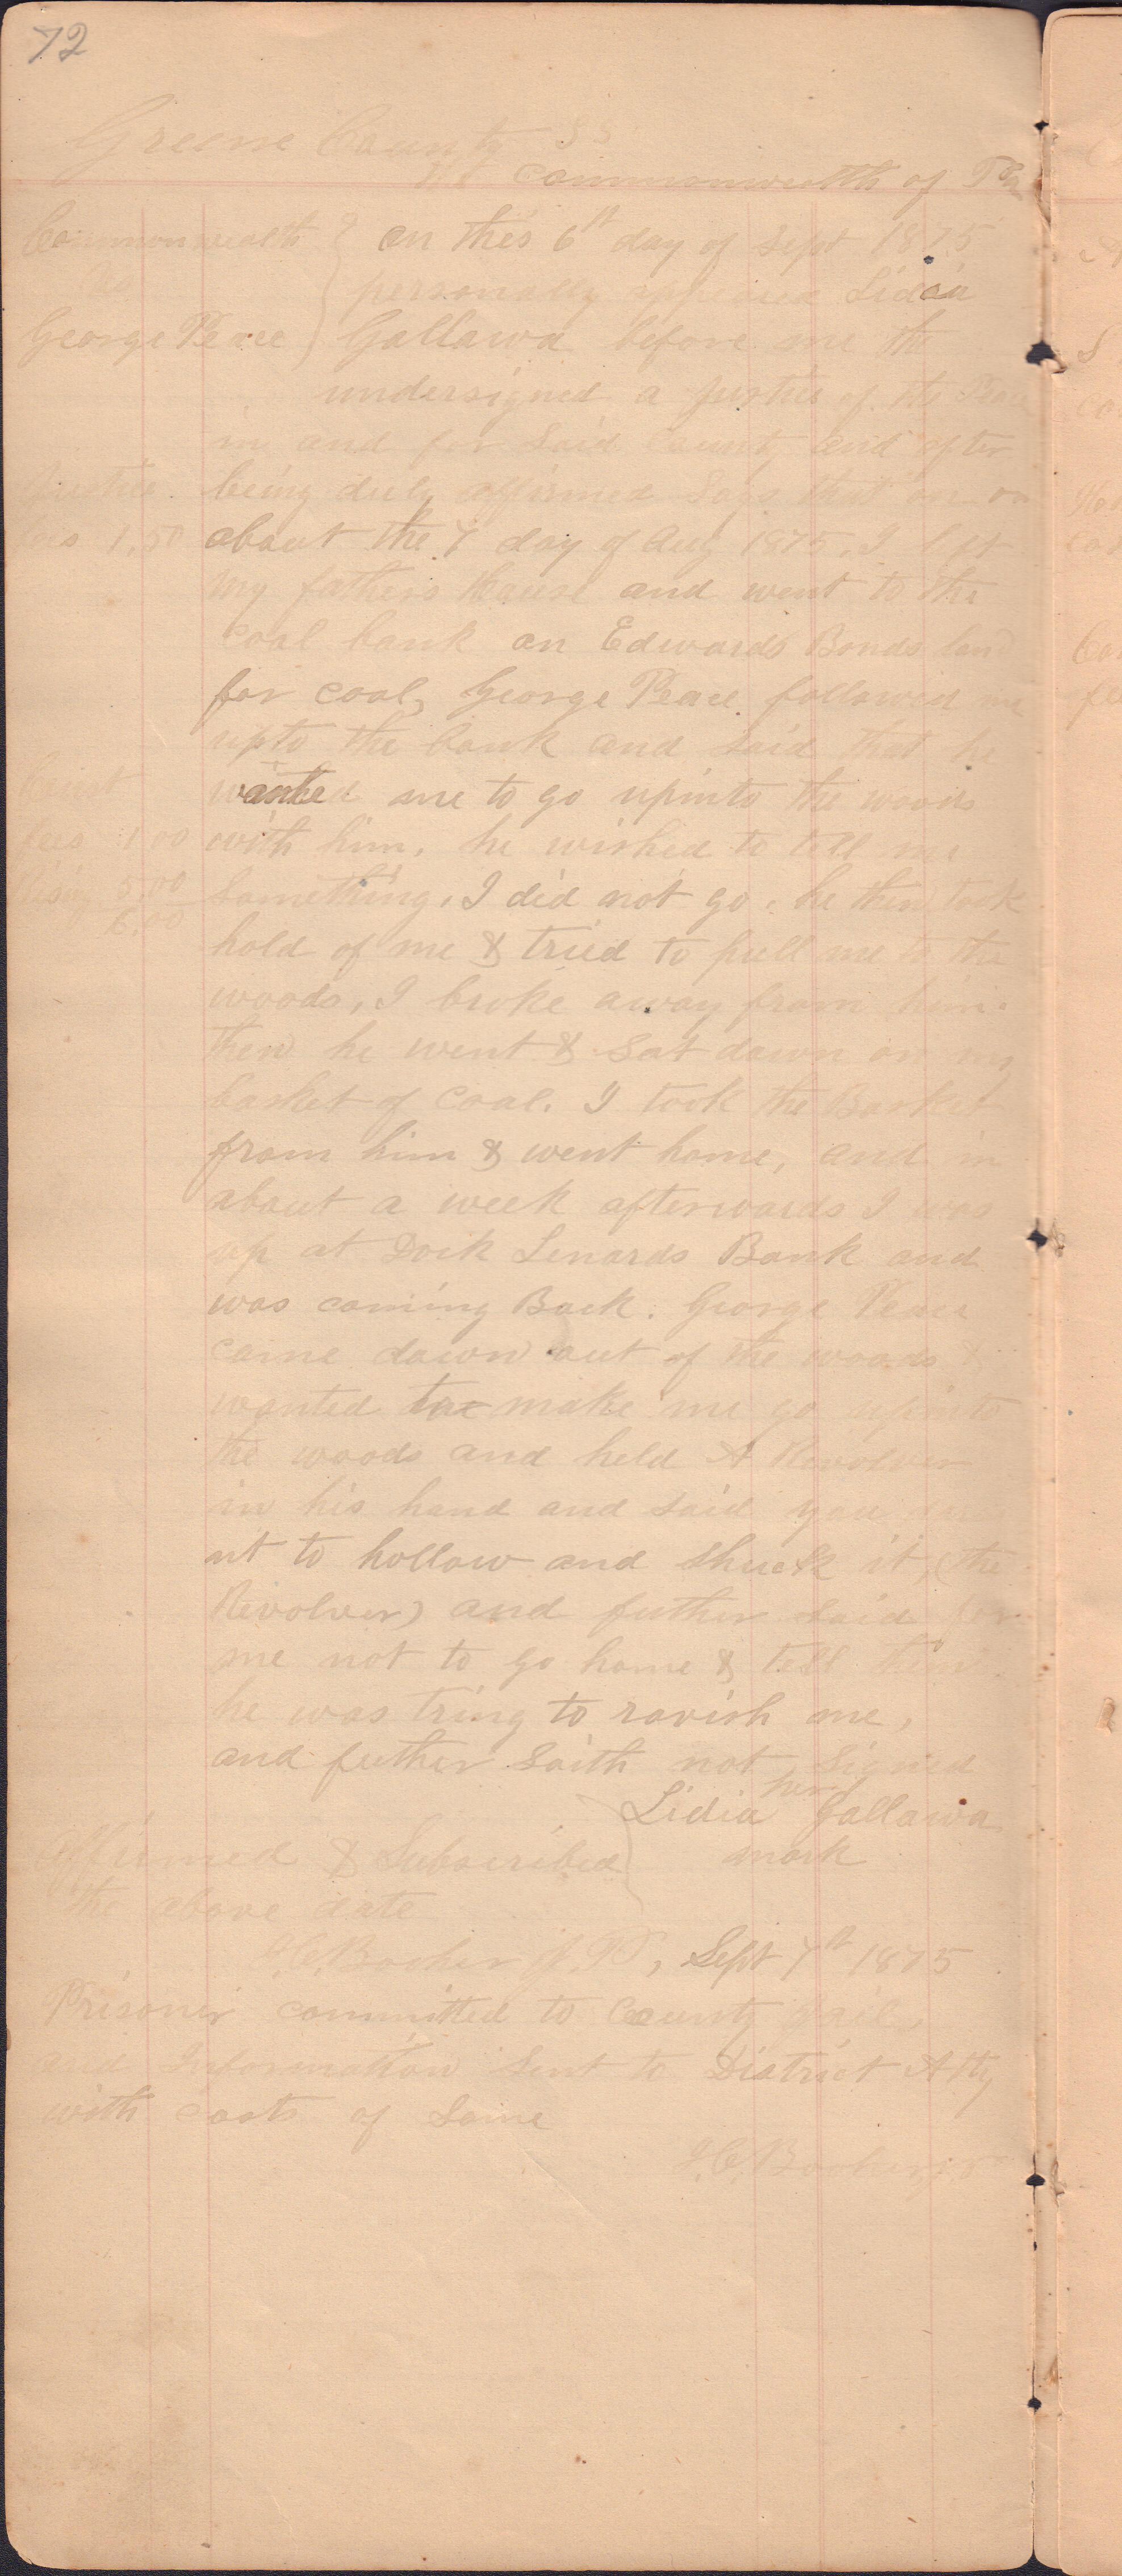 72
Greene County SS
Commonwealth of Pa
Commonwealth
vs
George Peace
On this 6th day of Sept 1875
personally appeared Lidia
Gallawa before me the
undersigned a Justice of the Peace
in and for Said County and after
being duly affirmed Says that on or
about the 7 day of Aug 1875, I left
my fathers House and went to the
coal bank on Edwards Bonds land
for coal, George Peace followed me
upto the bank and said that he
wanted me to go upinto the woods
with him, he wished to tell me
Something, I did not go, he then took
hold of me & tried to pull me to the
woods, I broke away from him.
then he went & sat down on my
basket of Coal. I took the Basket
from him & went home, and in
about a week afterwards I was
up at Doik Lenards Bank and
was coming Back. George Peace
came down out of the woods &
wanted to make me go upinto
the woods and held A Revolver
in his hand and said you
nt to hollow and shuck it, (the
Revolver) and futher said for
me not to go home & tell them
he was tring to ravish me,
and futher Saith not Signed
her
Lidia Gallawa
mark
Justice
fees 1,50
Const
fees 1 00
5,00
6,00
Affirmed & Subscribed
the above date
Booher J. P, Sept 7th 1875
Prisoner committed to County Jail,
and Information Sent to District Atty
with costs of Same
Booher